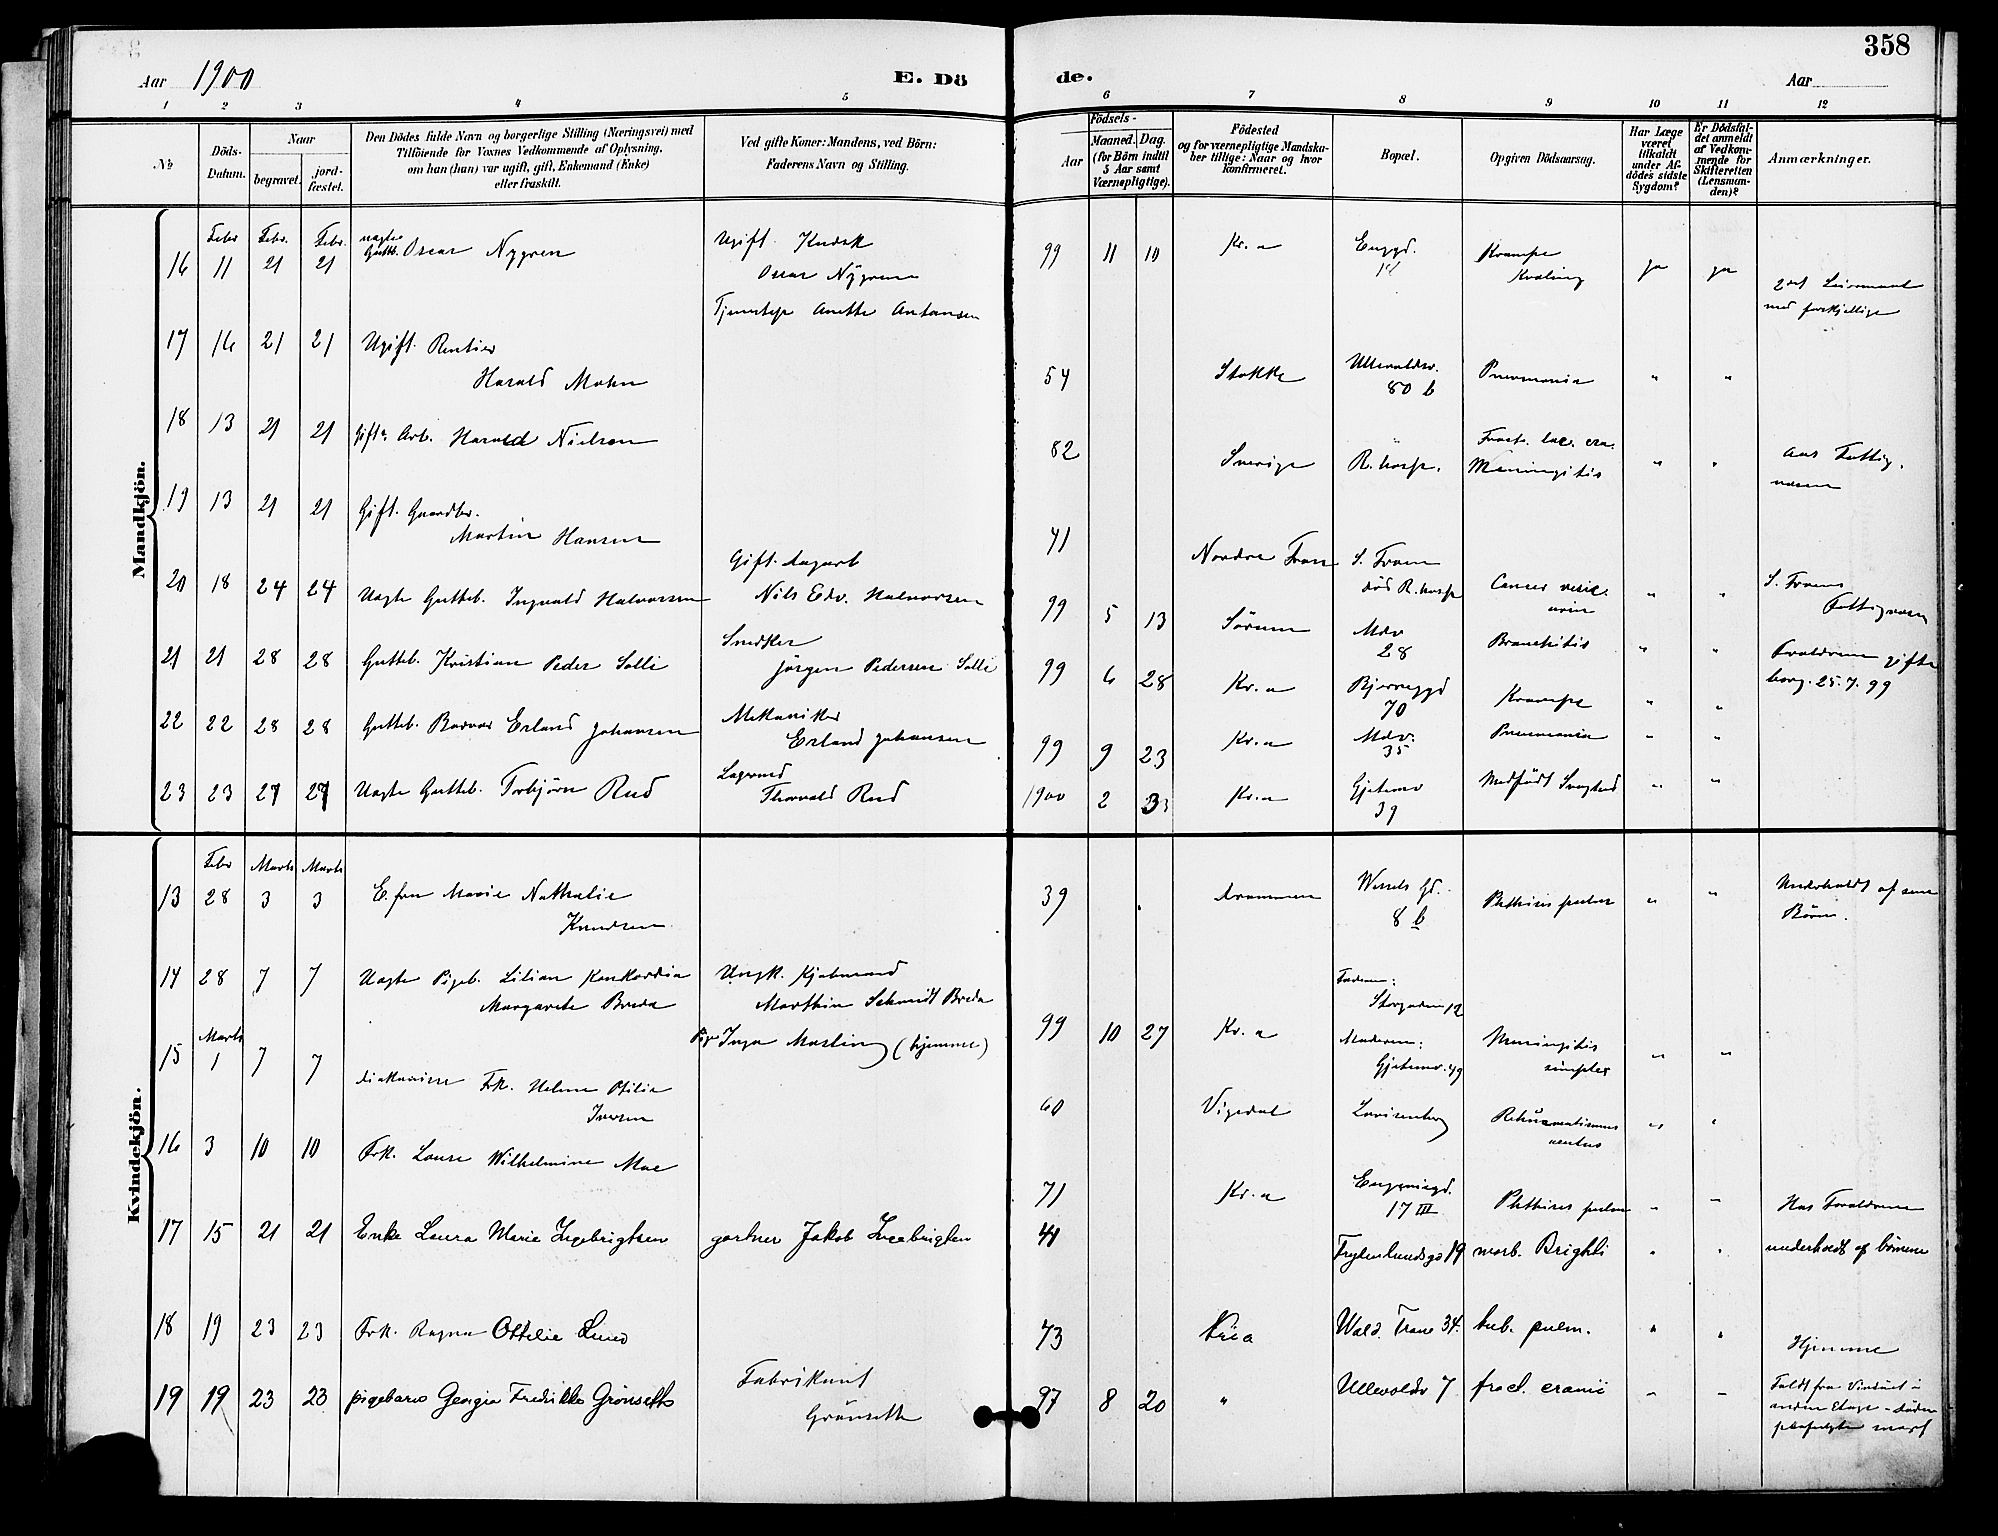 358
Aar 1900
E. Dö
de.
Aar
1 2 3 4 5 6 7 8 9 10 11 12
№
Döds-
Datum.
Naar
begravet.
jord-
fæstet.
Den Dödes fulde Navn og borgerlige Stilling (Næringsvei) med
Tilföiende for Voxnes Vedkommende af Oplysning,
om han (hun) var ugift, gift, Enkemand (Enke)
eller fraskilt.
Ved gifte Koner: Mandens, ved Börn:
Faderens Navn og Stilling.
Födsels-
Aar
Maaned.
Dag.
(for Börn indtil
5 Aar samt
Værnepligtige).
Födested
og for værnepligtige Mandska-
ber tillige: Naar og hvor
konfirmeret.
Bopæl.
Opgiven Dödsaarsag.
Har Læge
været
tilkaldt
under Af-
dödes sidste
Sygdom?
Er Dödsfal-
det anmeldt
af Vedkom-
mende for
Skifteretten
(Lensman-
den)?
Anmærkninger.
Mandkjön.
Febr Febr. Febr.
16 11 21 21 uægte Gutteb. Oscar Nygren
Ugift. Kudsk
Oscar Nygren
Tjenestep Anette Antonsen
99 11 10 Kr.a Enggd. Krampe
Kvælning ja ja
med forskjellige
17 16 21 21 Ugift. Rentier
Harald Mohn
54 Stokke Ullevoldsv.
80 b Pneumonia " "
18 13 21 21 Gift. Arb. Harald Nielsen
82 Sverige R.hosp. Meningitis " " Aas Fattig.
væsen
19 13 21 21 Gift. Gaardbr.
Martin Hansen
41 Nordre Fron S. Fron
död R.hosp Cancer vesic.
urin " " S. Frons
Fattigvæsen
20 18 24 24 Uægte Gutteb. Ingvald Halvorsen
Nils Edv. Halvorsen
99 5 13 Sörum Mdv
28 Bronchitis " " Forældrene gifte
borg. 25.7.99
21 21 28 28 Gutteb. Kristian Peder Solli
Snedker
Jörgen Pedersen Solli
99 6 28 Kr.a 70 Krampe " "
22 22 28 28 Gutteb. Erland Johansen
Mekaniker
Erland Johansen
99 9 23 Kr.a Mdv.
35 Pneumonia " "
23 23 27 27 Uægte Gutteb. Torbjörn Rud
Thorvald Rud
1900 2 Kr.a Gjetemv
39 Medfödt Svaghed " "
Kvindekjön.
Febr Marts Marts
13 28 3 3 E. fru Marie Nathalie
Knudsen
39 Drammen Wessels Gd.
8 b Phthisis pulm " " Underholdt af sine
Börn.
14 28 7 7 Uægte Pigeb. Lilian Konkordia
Margarete Breda
Ungk. Kjöbmand
Marthin Schmidt Breda
Pige Inga Martin (hjemme)
99 10 27 Kr.a Faderen:
Storgaden 12
Moderen:
Gjetemv. 49 Meningitis
simplex " "
Marts
15 1 7 7 Diakonisse Frk. Helene Otilie
Iversen
60 Vigedal Lovisenberg " "
16 3 10 10 Frk. Louise Wilhelmine Moe
71 Kr.a 17 III Phthisis pulm " " Hos Forældrene
17 15 21 21 Enke Laura Marie Ingebrigtsen
gartner Jakob Ingebrigtsen
41 Frydenlundsgd 19 morb. Brightii " " underholdt af börnene
18 19 23 23 Frk. Ragna Ottilie Lund
73 Kria Wald. Trane 34. tub. pulm. " " Hjemme
19 19 23 23 pigebarn Georgia Fredrikke Grönseth
Fabrikant
Grönseth
97 8 20 " Ullevoldsv 7 fract. cranii " " Faldt fra Vinduet i
anden Etage - döden